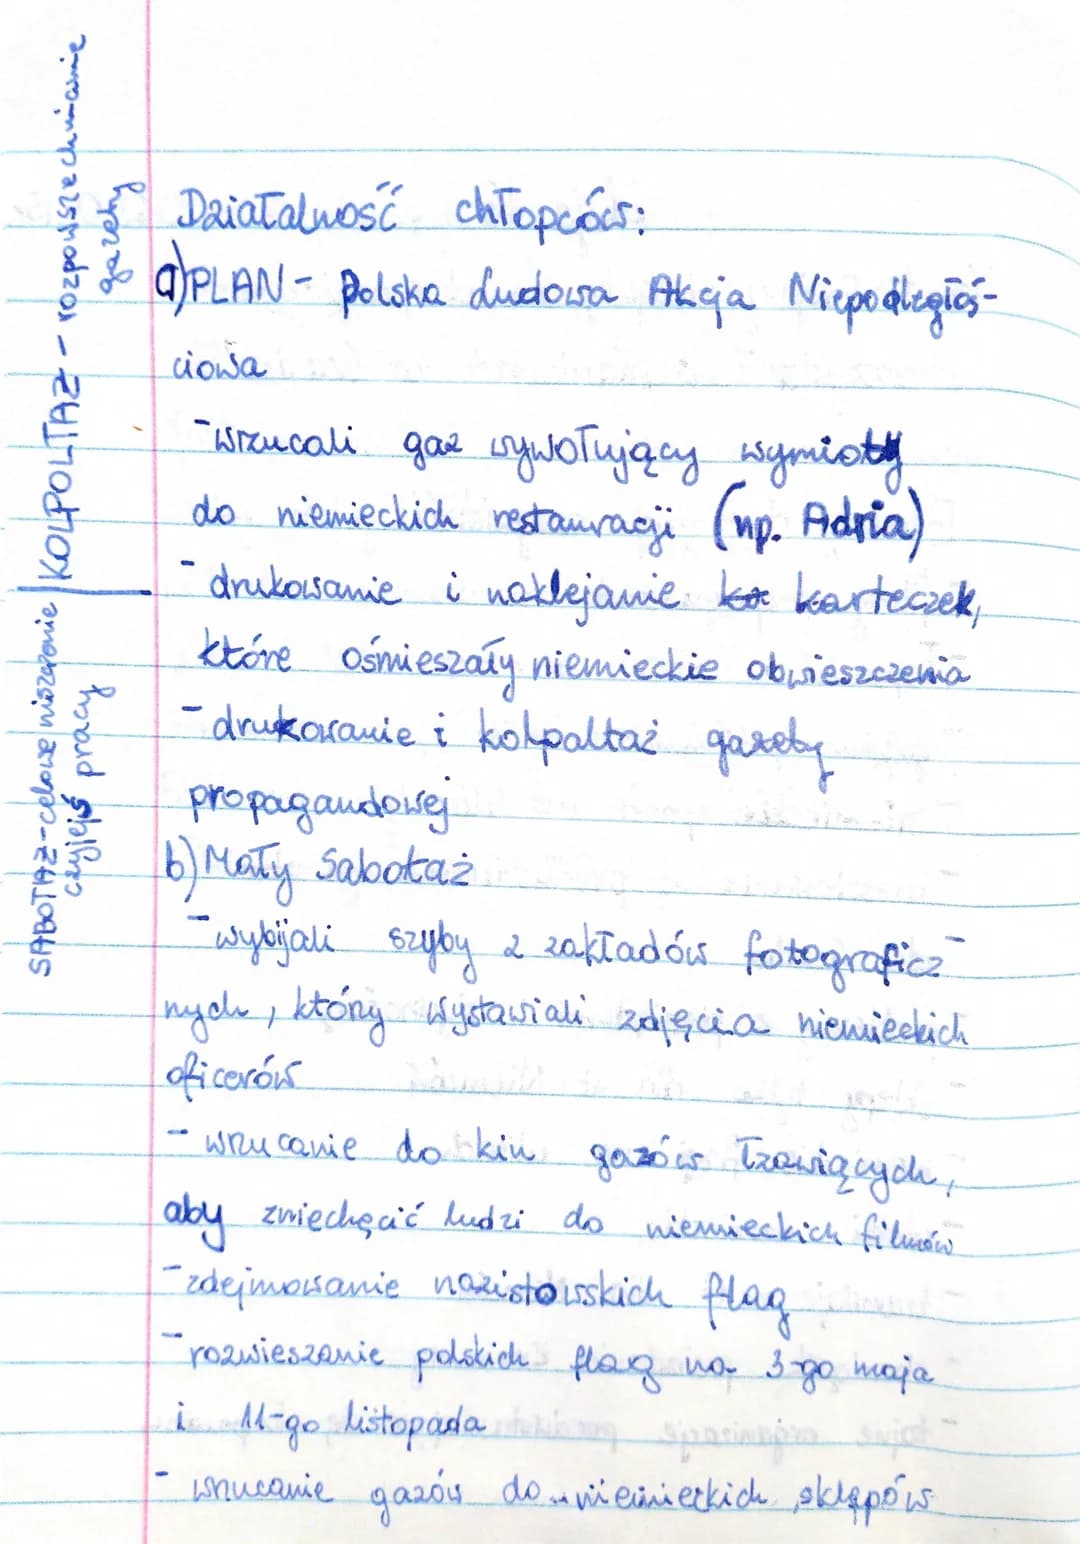 Działalność chłopców:
a) PLAN - Polska Ludowa Akcja Niepodległoś-
ciowa
- wrzucali gaz wywołujący wymioty
do niemieckich restauracji (np. Adria)
- drukowanie i naklejanie ka karteczek,
które ośmieszały niemieckie obwieszczenia
- drukowanie i kolpaltaż gazety
propagandowej
b) Mały Sabotaż
- wybijali szyby z zakładów fotograficz-
nych, który wystawiali zdjęcia niemieckich
oficerów
- wrzucanie do kin gazów łzawiących,
aby zniechęcić ludzi do niemieckich filmów
- zdejmowanie nazistowskich flag
- rozwieszanie polskich flag na 3-go maja
i 11-go listopada
- wrzucanie gazów do niemieckich sklepów
SABOTAŻ - celowe niszczenie
czyjejś pracy
KOLPOLTAŻ - rozpowszechnianie
gazety